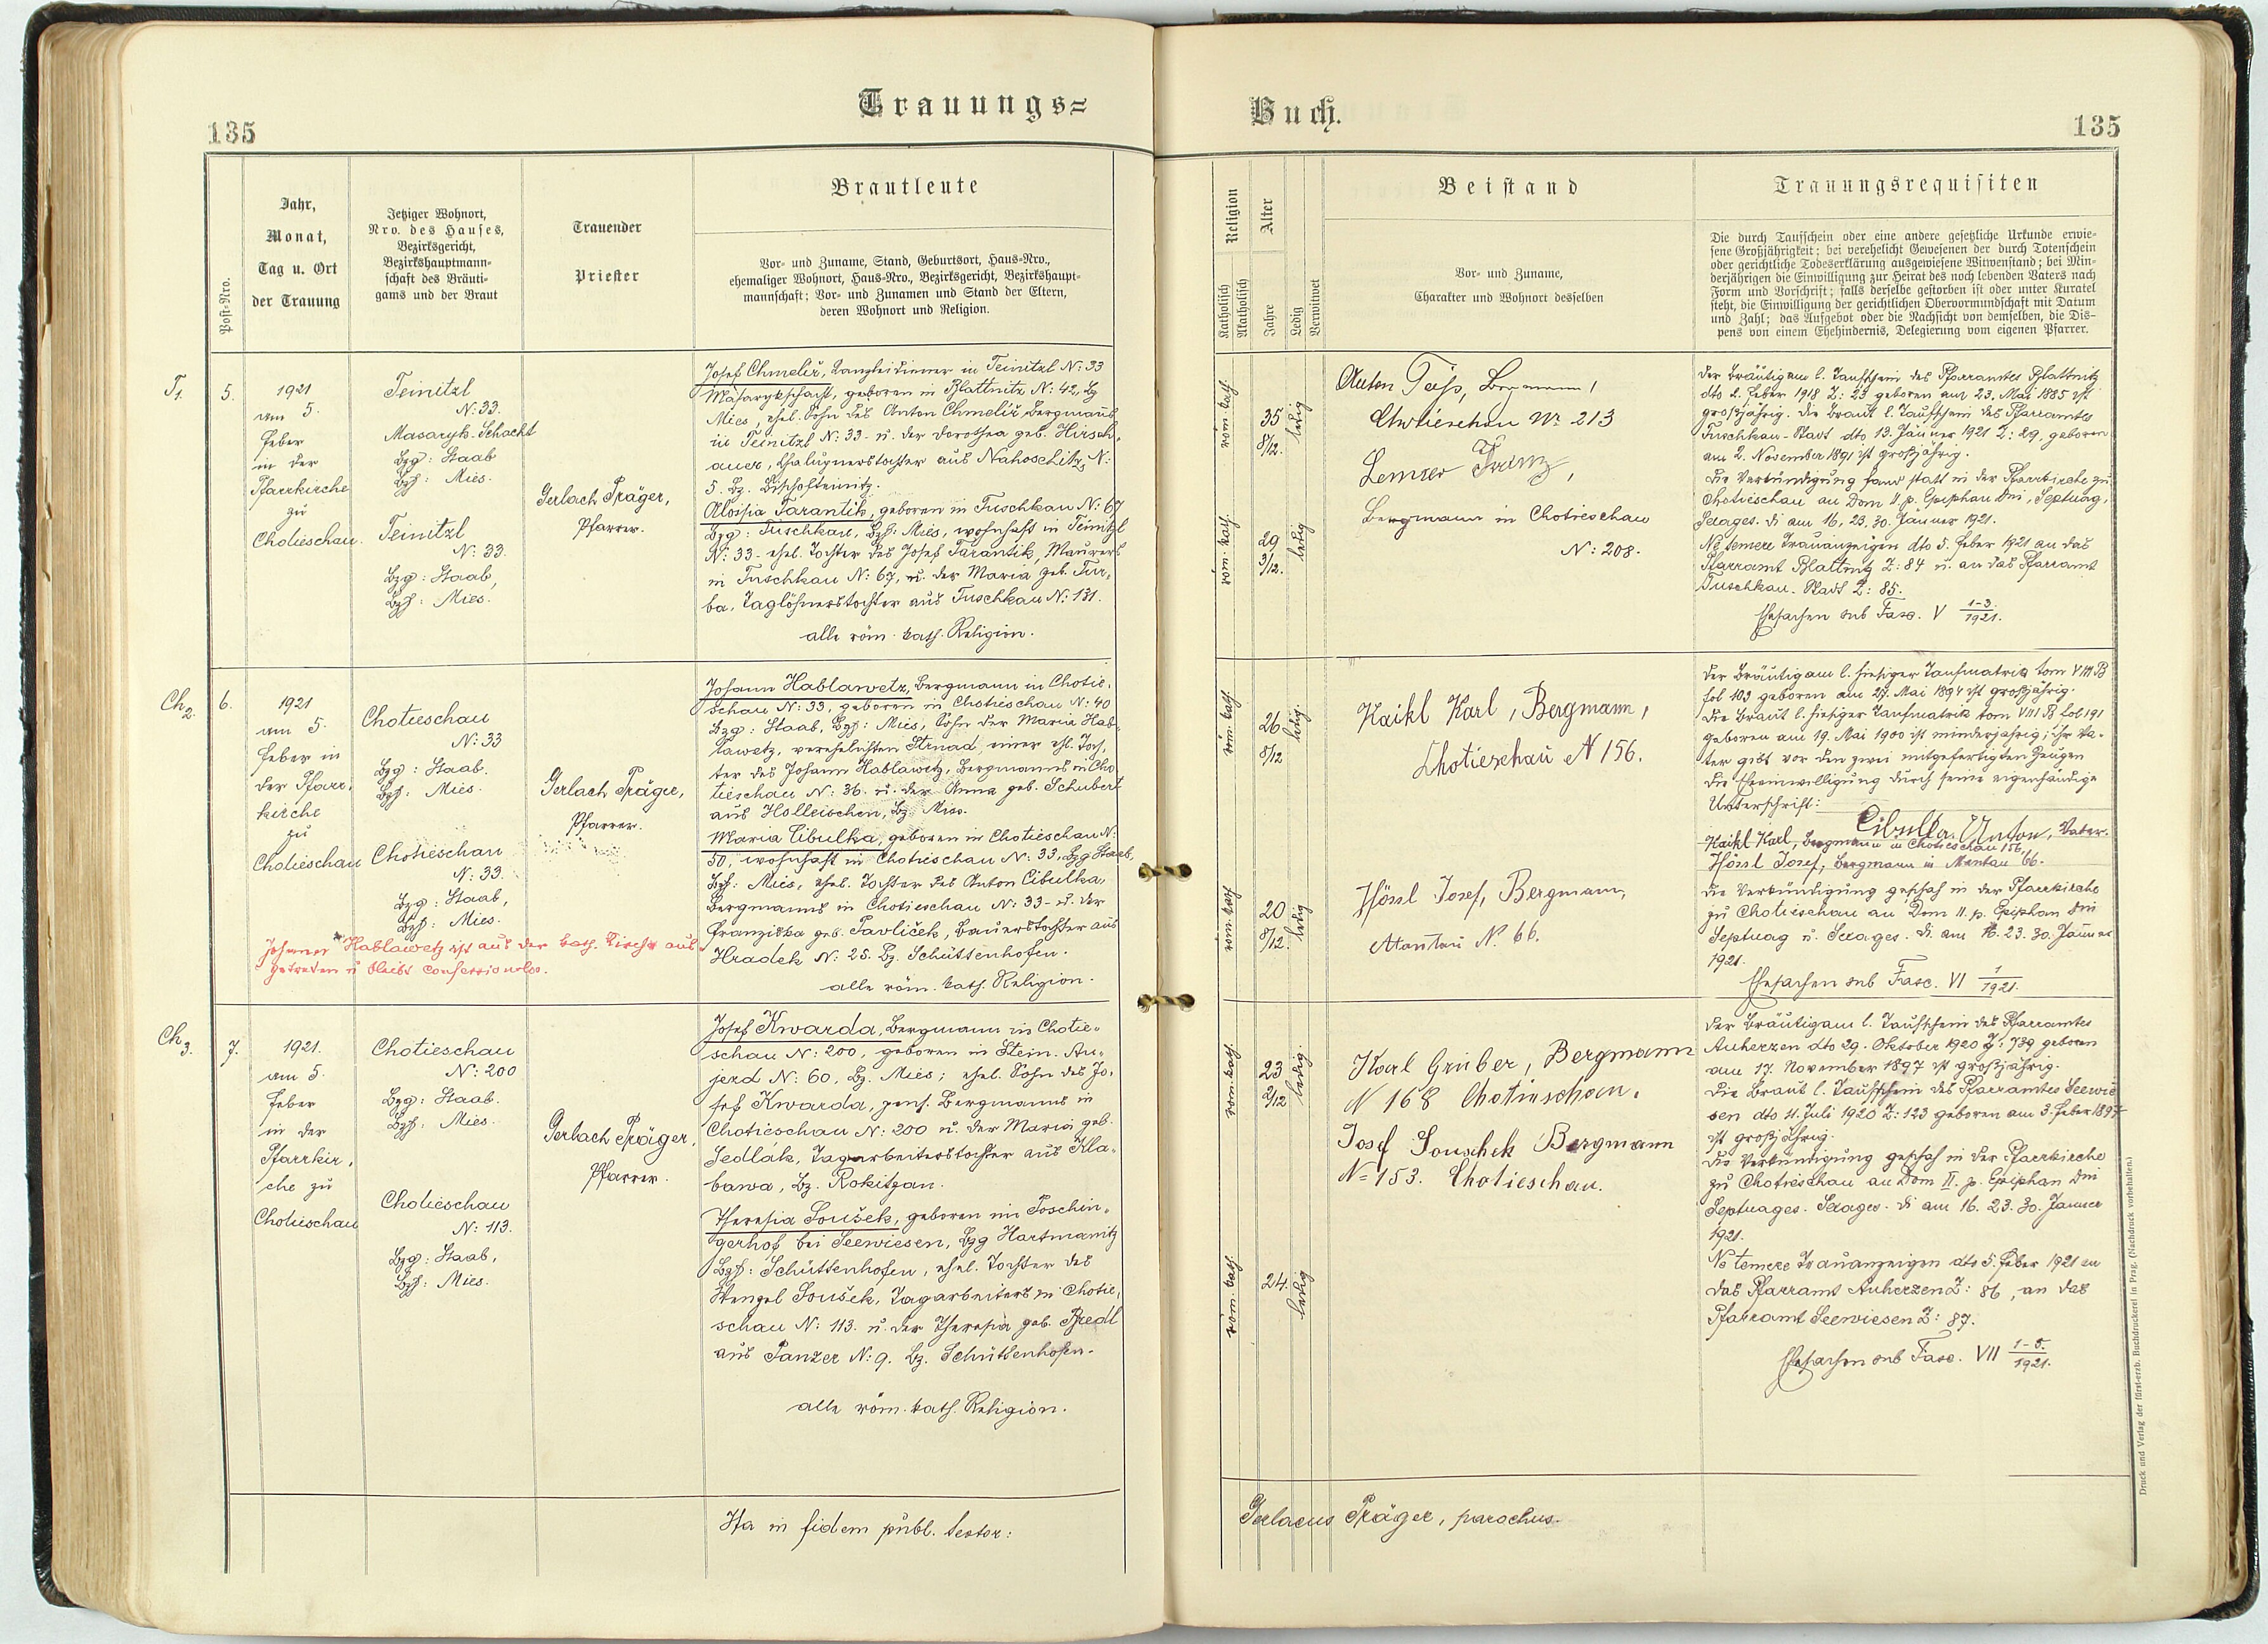 Trauungs=
135
Post-Nro.
Jahr,
Monat,
Tag u. Ort
der Trauung
Jetziger Wohnort,
Nro. des Hauses,
Bezirksgericht,
Bezirkshauptmann-
schaft des Bräuti-
gams und der Braut
Trauender
Priester
Brautleute
Vor- und Zuname, Stand, Geburtsort, Haus-Nro.,
ehemaliger Wohnort, Haus-Nro., Bezirksgericht, Bezirkshaupt-
mannschaft; Vor- und Zunamen und Stand der Eltern,
deren Wohnort und Religion.
T1.
5.
1921
am 5.
Feber
in der
Pfarrkirche
zu
Chotieschau.
Teinitzl
N: 33.
Masaryk-Schacht
Bzg: Staab
Bzh: Mies.
Teinitzl
N: 33.
Bzg: Staab,
Bzh: Mies.
Gerlach Präger,
Pfarrer.
Josef Chmeliř, Kanzleidiener in Teinitzl N: 33
Masarykschacht, geboren in Blattnitz N: 42, Bz
Mies, ehel. Sohn des Anton Chmeliř, Bergmanns
in Teinitzl N: 33- u. der Dorothea geb. Hirsch-
auer, Chalupnerstochter aus Nahoschitz, N:
5. Bz. Bischofteinitz.
Aloisia Tarantik, geboren in Tuschkau N: 67
Bzg: Tuschkau, Bzh: Mies, wohnhaft in Teinitzl
N: 33- ehel. Tochter des Josef Tarantik, Maurers
in Tuschkau N: 67, u. der Maria geb. Tur-
ba, Taglöhnerstochter aus Tuschkau N: 131.
alle röm. kath. Religion.
Ch2.
6.
1921
am 5.
Feber in
der Pfarr-
kirche
zu
Chotieschau
Chotieschau
N: 33
Bzg: Staab.
Bzh: Mies.
Chotieschau
N: 33.
Bzg: Staab,
Bzh: Mies.
Gerlach Präger,
Pfarrer.
Johann Hablawetz, Bergmann in Chotie-
schau N: 33, geboren in Chotieschau N: 40
Bzg: Staab, Bzh: Mies, Sohn der Maria Hab-
lawetz, verehelichten Strnad, einer ehl. Toch-
ter des Johann Hablawetz, Bergmanns in Cho
tieschau N: 36. u. der Anna geb. Schubert
aus Holleischen, Bz. Mies.
Maria Cibulka, geboren in Chotieschau N:
50, wohnhaft in Chotieschau N: 33, Bzg Staab,
Bzh: Mies, ehel. Tochter des Anton Cibulka,
Bergmanns in Chotieschau N: 33- u. der
Franziska geb. Pavliček, Bauerstochter aus
Hradek N: 25. Bz. Schüttenhofen.
alle röm. kath. Religion.
Johann Hablawetz ist aus der kath. Kirche aus-
getreten u bleibt confessionslos.
Ch3.
7.
1921.
am 5.
Feber
in der
Pfarrkir-
che zu
Chotieschau
Chotieschau
N: 200
Bzg: Staab.
Bzh: Mies.
Chotieschau
N: 113.
Bzg: Staab,
Bzh: Mies.
Gerlach Präger,
Pfarrer.
Josef Kwarda, Bergmann in Chotie-
schau N: 200, geboren in Stein. Au-
jezd N: 60, Bz. Mies; ehel. Sohn des Jo-
sef Kwarda, pens. Bergmanns in
Chotieschau N: 200 u. der Maria geb.
Sedlák, Tagarbeiterstochter aus Kla-
bawa, Bz. Rokitzan.
Theresia Soušek, geboren im Poschin-
gerhof bei Seewiesen, Bzg Hartmanitz
Bzh: Schüttenhofen, ehel. Tochter des
Wenzel Soušek, Tagarbeiters in Chotie-
schau N: 113. u. der Theresia geb. Bredl
aus Panzer N: 9. Bz. Schüttenhofen.
alle röm. kath. Religion.
Ita in fidem publ. testor:
Buch.
135
Religion
Katholisch
Akatholisch
Alter
Jahre
Ledig
Verwitwet
Beistand
Vor- und Zuname,
Charakter und Wohnort desselben
Trauungsrequisiten
Die durch Taufschein oder eine andere gesetzliche Urkunde erwie-
sene Großjährigkeit; bei verehelicht Gewesenen der durch Totenschein
oder gerichtliche Todeserklärung ausgewiesene Witwenstand; bei Min-
derjährigen die Einwilligung zur Heirat des noch lebenden Vaters nach
Form und Vorschrift; falls derselbe gestorben ist oder unter Kuratel
steht, die Einwilligung der gerichtlichen Obervormundschaft mit Datum
und Zahl; das Aufgebot oder die Nachsicht von demselben, die Dis-
pens von einem Ehehindernis, Delegierung vom eigenen Pfarrer.
röm. kath.
35
8/12.
ledig
röm. kath.
29
3/12.
ledig
Anton Bergmann,
Chotieschau Nr 213
Franz,
Bergmann in Chotieschau
N: 208.
Der Bräutigam l. Taufschein des Pfarramtes Blattnitz
dto 2. Feber 1918 Z: 23 geboren am 23. Mai 1885 ist
großjährig. Die Braut l. Taufschein des Pfarramtes
Tuschkau-Stadt dto 13. Jänner 1921 Z: 29, geboren
am 2. November 1891 ist großjährig.
Die Verkündigung fand statt in der Pfarrkirche zu
Chotieschau an Dom II. p. Epiphan Dni, Septuag,
Sexages. di am 16. 23. 30. Jänner 1921.
Ne temere Trauanzeigen dto 5. Feber 1921 an das
Pfarramt Blattnitz Z: 84 u. an das Pfarramt
Tuschkau-Stadt Z: 85.
Ehesachen sub Fasc. V 1-3/1921.
röm. kath.
26
8/12
ledig.
röm. kath
20
8/12.
ledig
Haikl Karl, Bergmann,
Chotieschau N 156.
Hössl Josef, Bergmann,
Mantau N. 66.
Der Bräutigam l. hiesiger Taufmatrik tom VIII B
fol 103 geboren am 27. Mai 1894 ist großjährig.
Die Braut l. hiesiger Taufmatrik tom VIII B fol 191
geboren am 19. Mai 1900 ist minderjährig; ihr Va-
ter gibt vor den zwei mitgefertigten Zeugen
die Eheeinwilligung durch seine eigenhändige
Unterschrift:
Cibulka Anton, Vater.
Haikl Karl, Bergmann in Chotieschau 156,
Hössl Josef, Bergmann in Mantau 66.
Die Verkündigung geschah in der Pfarrkirche
zu Chotieschau an Dom II. p. Epiphan Dni
Septuag u. Sexages. di. am 16. 23. 30. Jänner
1921.
Ehesachen sub Fasc. VI 1/1921.
röm. kath.
23
2/12
ledig.
röm. kath.
24.
ledig
Karl Gruber, Bergmann
N 168 Chotieschau.
Josef Souschek Bergmann
N= 153. Chotieschau.
Der Bräutigam l. Taufschein des Pfarramtes
Auherzen dto 29. Oktober 1920 Z: 739 geboren
am 17. November 1897 ist großjährig.
Die Braut l. Taufschein des Pfarramtes Seewie
sen dto 11. Juli 1920 Z: 123 geboren am 3. Feber 1897
ist großjährig.
Die Verkündigung geschah in der Pfarrkirche
zu Chotieschau an Dom II. p. Epiphan Dni
Septuages. Sexages. di am 16. 23. 30. Jänner
1921.
Ne temere Trauanzeigen dto 5. Feber 1921 an
das Pfarramt Auherzen Z: 86, an das
Pfarramt Seewiesen Z: 87.
Ehesachen sub Fasc. VII 1-5/1921.
Gerlacus Präger, parochus.
Druck und Verlag der fürst-erzb. Buchdruckerei in Prag. (Nachdruck vorbehalten.)